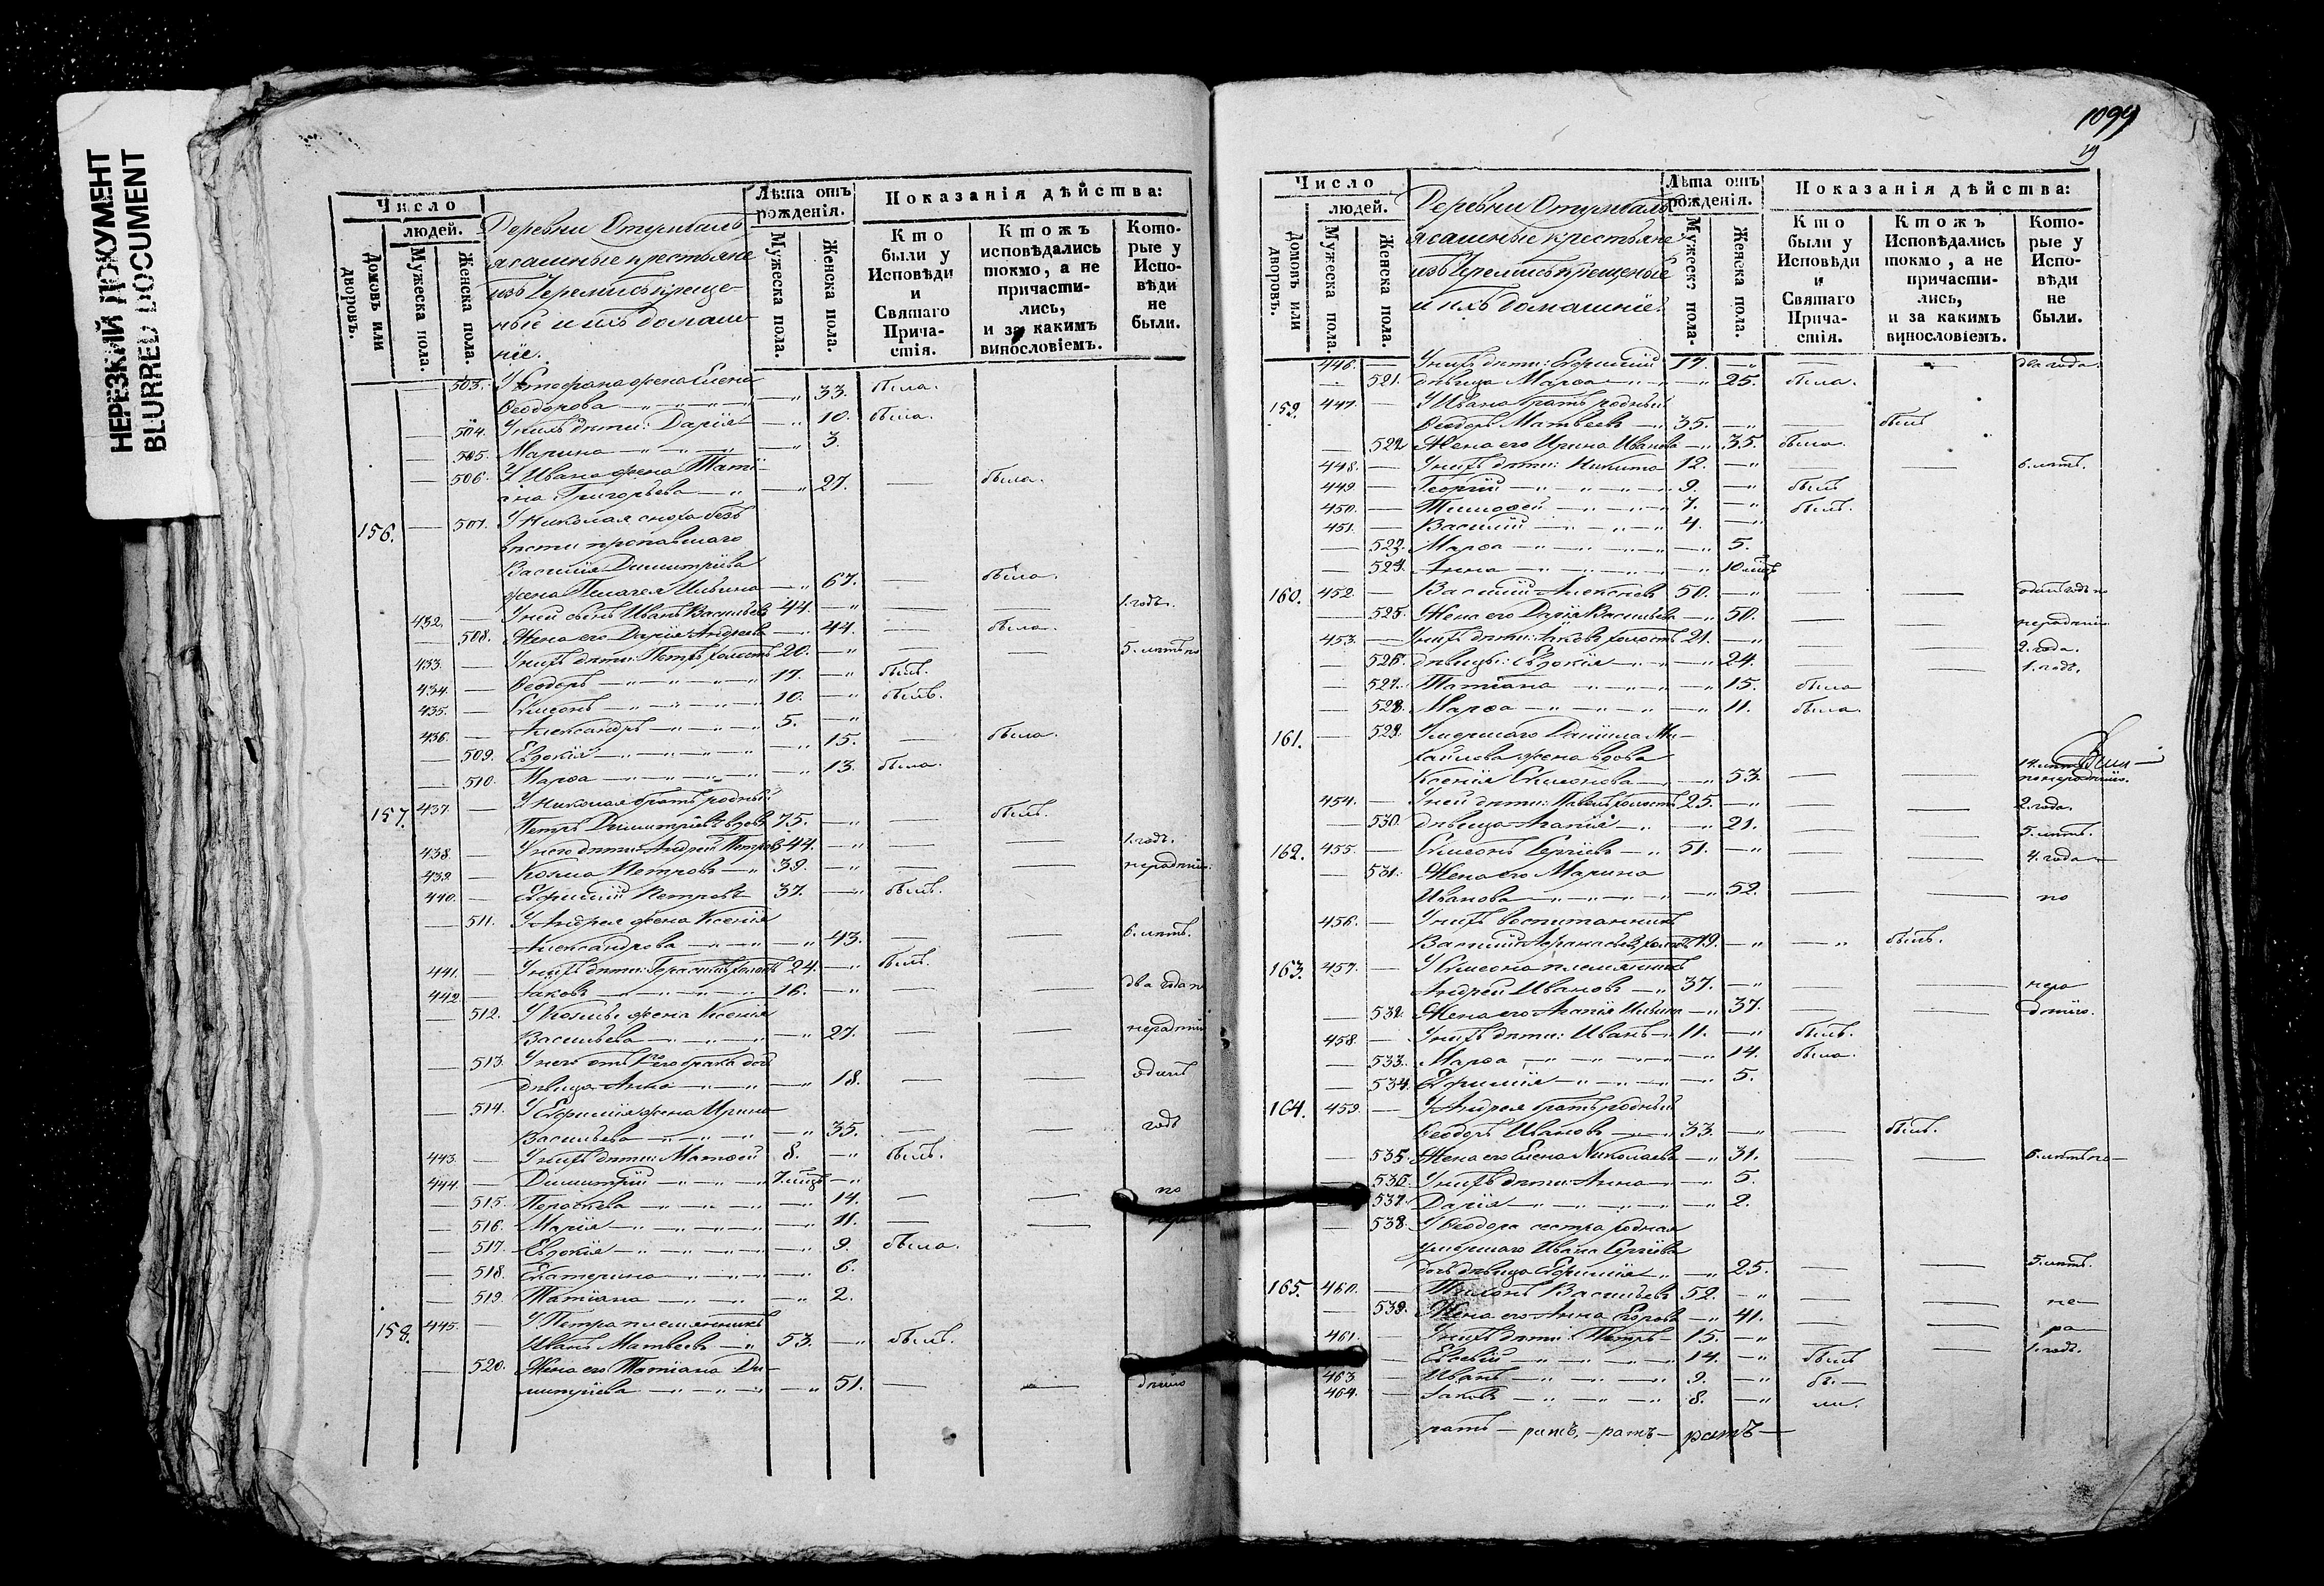 НЕРЕЗКИЙ ДОКУМЕНТ
BLURRED DOCUMENT
Число
людей.
Домовъ или дворовъ.
Мужеска пола.
Женска пола.
Деревни
ясашные крестьяне
изъ Черемисъ креще-
ные и ихъ домаш-
ніе.
Лѣта отъ рожденія.
Мужеска пола.
Женска пола.
Показанія дѣйства:
Кто были у Исповѣди и Святаго Прича-стія.
Ктожъ исповѣдались токмо, а не причасти-лись, и за какимъ винословіемъ.
Кото-рые у Испо-вѣди не были.
503. У Стефана жена Елена
Ѳеодорова 33. была.
504. У нихъ дѣти: Дарія 10. была.
505. Марина 3.
506. У Ивана жена Тати-
ана Григорьева 27. была.
156. 507. У Николая сноха безъ
вѣсти пропавшаго
Василія Димитріева
жена Пелагея Ильина 67. была.
432. У ней сынъ Иванъ Васильевъ 44. 1. годъ.
508. Жена его Дарія Андреева 44. была.
433. У нихъ дѣти: Петръ холостъ 20. 5. лѣтъ по
434. Ѳеодоръ 17. былъ.
435. Симеонъ 10. былъ.
436. Александръ 5.
509. Евдокія 15. была.
510. Марѳа 13. была.
157. 437. У Николая братъ родный
Петръ Димитріевъ вдовъ 75. былъ.
438. У него дѣти: Андрей Петровъ 44. 1. годъ.
439. Козма Петровъ 39. нерадѣнію.
440. Ефимій Петровъ 37. былъ.
511. У Андрея жена Ксенія
Александрова 43. 6. лѣтъ.
441. У нихъ дѣти: Герасимъ холостъ 24. былъ.
442. Іаковъ 16. два года по
512. У Козмы жена Ксенія
Васильева 27. нерадѣнію
513. У него отъ 1го брака дочь
дѣвица Анна 18. одинъ
514. У Ефимія жена Ирина
Васильева 35. годъ
443. У нихъ дѣти: Матѳей 8. былъ.
444. Димитрій 7. мѣсц.
515. Параскева 14. по
516. Марія 11. нера
517. Евдокія 9. была.
518. Екатерина 6.
519. Татіана 2.
158. 445. У Петра племянникъ
Иванъ Матвеевъ 53. былъ.
520. Жена его Татіана Ди-
митріева 51. дѣнію
1099
19
Число
людей.
Домовъ или дворовъ.
Мужеска пола.
Женска пола.
Деревни
ясашные крестьяне
изъ Черемисъ крещеные
и ихъ домашніе.
Лѣта отъ рожденія.
Мужеска пола.
Женска пола.
Показанія дѣйства:
Кто были у Исповѣди и Святаго Прича-стія.
Ктожъ Исповѣдались токмо, а не причасти-лись, и за какимъ винословіемъ.
Кото-рые у Испо-вѣди не были.
446. У нихъ дѣти: Ефимій 17. два года.
521. дѣвица Марѳа 25. была.
159. 447. У Ивана братъ родный
Ѳеодоръ Матвеевъ 35. былъ
522. Жена его Ирина Иванова 35. была.
448. У нихъ дѣти: Никита 12. 6. лѣтъ.
449. Георгій 9. былъ
450. Тимоѳей 7. былъ.
451. Василій 4.
523. Марѳа 5.
524. Анна 10 мѣсц.
160. 452. Василій Алексѣевъ 50. одинъ годъ по
525. Жена его Дарія Васильева 50. нерадѣнію
453. У нихъ дѣти: Іаковъ холостъ 21. 2. года.
526. дѣвицы: Евдокія 24. 1. годъ.
527. Татіана 15. была
528. Марѳа 11. была.
161. 529. Умершаго Даніила Ми-
хайлова жена вдова
Ксенія Симеонова 53. 14. лѣтъ
по нерадѣнію.
454. У ней дѣти: Павелъ холостъ 25. 2. года.
530. дѣвица Агапія 21. 5. лѣтъ.
162. 455. Симеонъ Сергіевъ 51. 4. года
531. Жена его Марина
Иванова 52. по
456. У нихъ воспитанникъ
Василій Аѳанасьевъ холостъ 19. былъ.
163. 457. У Симеона племянникъ
Андрей Ивановъ 37. нера
532. Жена его Агапія Ильина 37. дѣнію.
458. У нихъ дѣти: Иванъ 11. былъ.
533. Марѳа 14. была.
534. Ефимія 5.
164. 459. У Андрея братъ родный
Ѳеодоръ Ивановъ 33. былъ.
535. Жена его Елена Николаева 31. 6. лѣтъ по
536. У нихъ дѣти: Анна 5.
537. Дарія 2.
538. У Ѳеодора сестра родная
умершаго Ивана Сергіева
дочь дѣвица Ефимія 25. 5. лѣтъ.
165. 460. Васильевъ 52. не
539. Жена его Анна Егорова 41. ра
461. У нихъ дѣти: Петръ 15. 1. годъ.
Евсевій 14. былъ
463. Иванъ 9. бы-
464. Іаковъ 8. ли.
ратъ - ратъ, - ратъ - ратъ